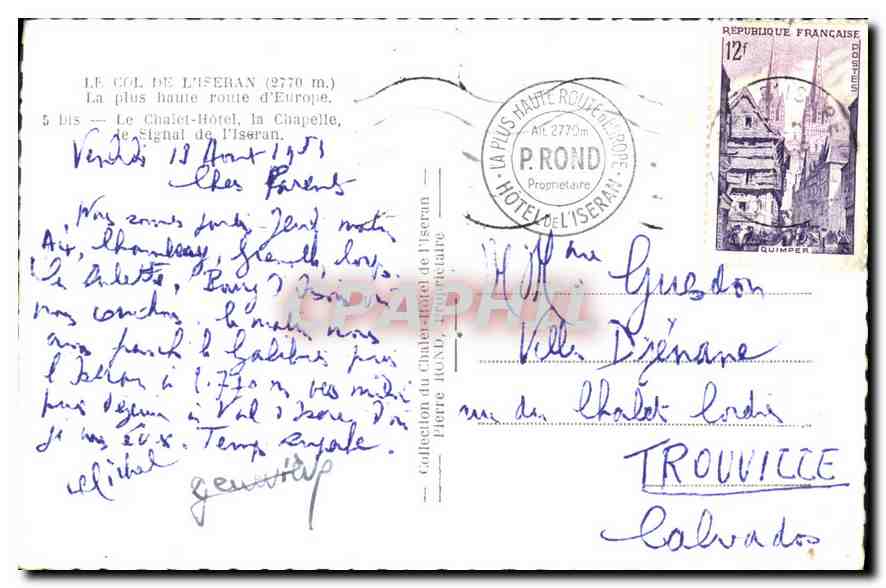 LE COL DE L'ISERAN (2770 m.)
La plus haute route d'Europe.
5 bis — Le Chalet-Hôtel, la Chapelle,
le Signal de l'Iseran.
Vendredi 13 Aout 195
Chers Parents
Nous sommes partis Jeudi matin
Aix, Chambery, Grenoble,
Bourg d'Oisans où
nous couchons. le matin nous
avons franchi le Galibier puis
l'Iseran à 2.770 m vers midi
puis déjeuner à Val d'Isère d'où
je vous écris. Temps superbe.
Michel
Collection du Chalet-Hôtel de l'Iseran
Pierre ROND, Propriétaire
LA PLUS HAUTE ROUTE D'EUROPE
Alt. 2770m
P. ROND
Propriétaire
HÔTEL DE L'ISERAN
RÉPUBLIQUE FRANÇAISE
12f
POSTES
QUIMPER
CPAPHIL
M. Mme Guesdon
Villa
rue du Chalet Cordier
TROUVILLE
Calvados